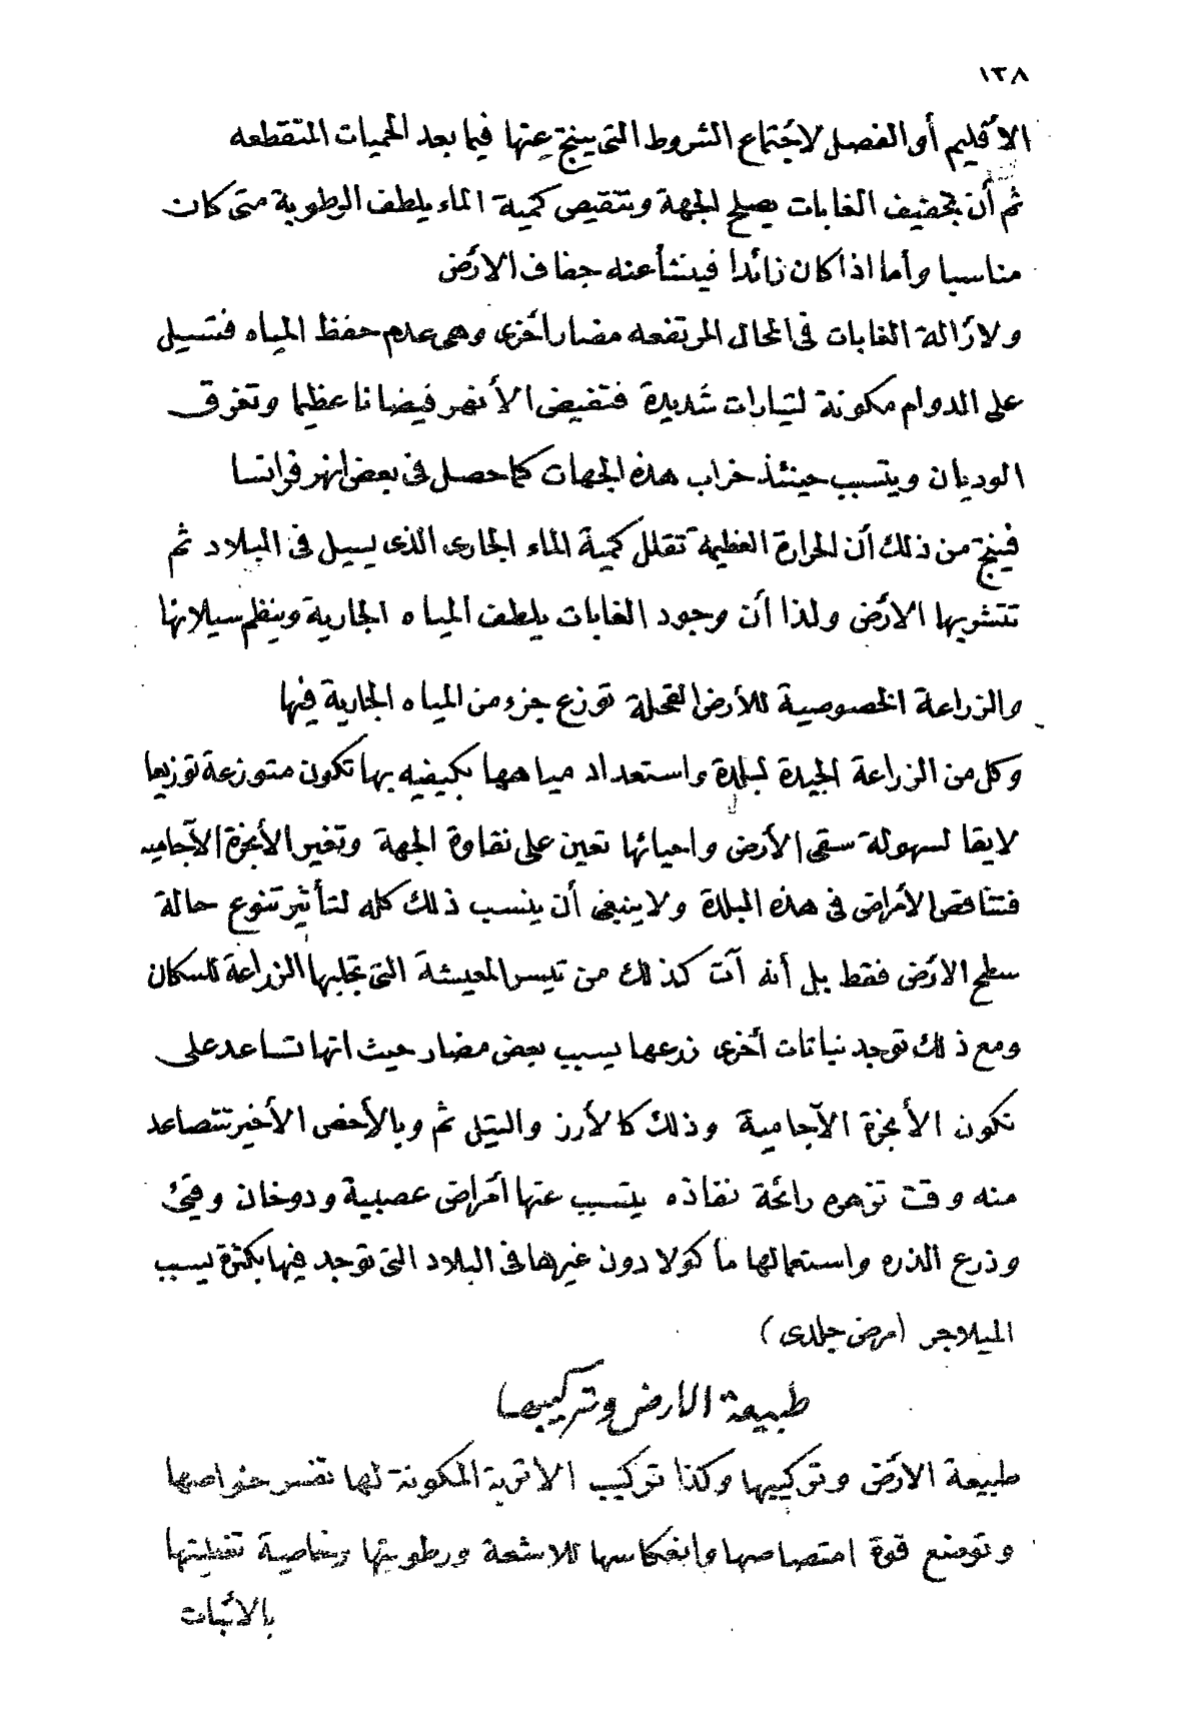 ١٣٨
الأقليم أو الفصل لاجتماع الشروط التى ينتج عنها فيما بعد الحميات المتقطعه
ثم أن تجفيف الغابات يصلح الجهة وتنقيص كمية الماء يلطف الرطوبة متى كان
مناسبا وأما اذا كان زائدا فينشأ عنه جفاف الأرض
ولازالة الغابات فى المحال المرتفعه مضار أخرى وهى عدم حفظ المياه فتسيل
على الدوام مكونة لتيارات شديدة فتفيض الأنهر فيضانا عظيما وتغرق
الوديان ويتسبب حينئذ خراب هذه الجهات كما حصل فى بعض انهر فرانسا
فينتج من ذلك أن الحرارة العظيمة تقلل كمية الماء الجارى الذى يسيل فى البلاد ثم
تتشربها الأرض ولذا أن وجود الغابات يلطف المياه الجارية وينظم سيلانها
والزراعة الخصوصية للأرض القحلة توزع جزء من المياه الجارية فيها
وكل من الزراعة الجيدة لبلدة واستعداد مياهها بكيفيه بها تكون متوزعة توزيعا
لايقا لسهولة سقى الأرض واحيائها تعين على نقاوة الجهة وتغير الأبخرة الآجاميه
فتتناقص الأمراض فى هذه البلدة ولا ينبغى أن ينسب ذلك كله لتأثير تنوع حالة
سطح الارض فقط بل أنه آت كذلك من تيسر المعيشة التى تجلبها الزراعة للسكان
ومع ذلك توجد نباتات أخرى زرعها يسبب بعض مضار حيث انها تساعد على
تكون الأبخرة الآجامية وذلك كالأرز والتيل ثم وبالأخص الأخير تتصاعد
منه وقت تزهره رائحة نفاذه يتسبب عنها أمراض عصبية ودوخان وقئ
وزرع الذره واستعمالها مأكولا دون غيرها فى البلاد التى توجد فيها بكثرة يسبب
الميلاجر (مرض جلدى)
طبيعة الارض وتركيبها
طبيعة الأرض وتركيبها وكذا تركيب الاتربة المكونة لها تفسر خواصها
وتوضع قوة امتصاصها وانعكاسها للاشعة ورطوبتها وخاصية تغطيتها
بالأنبات